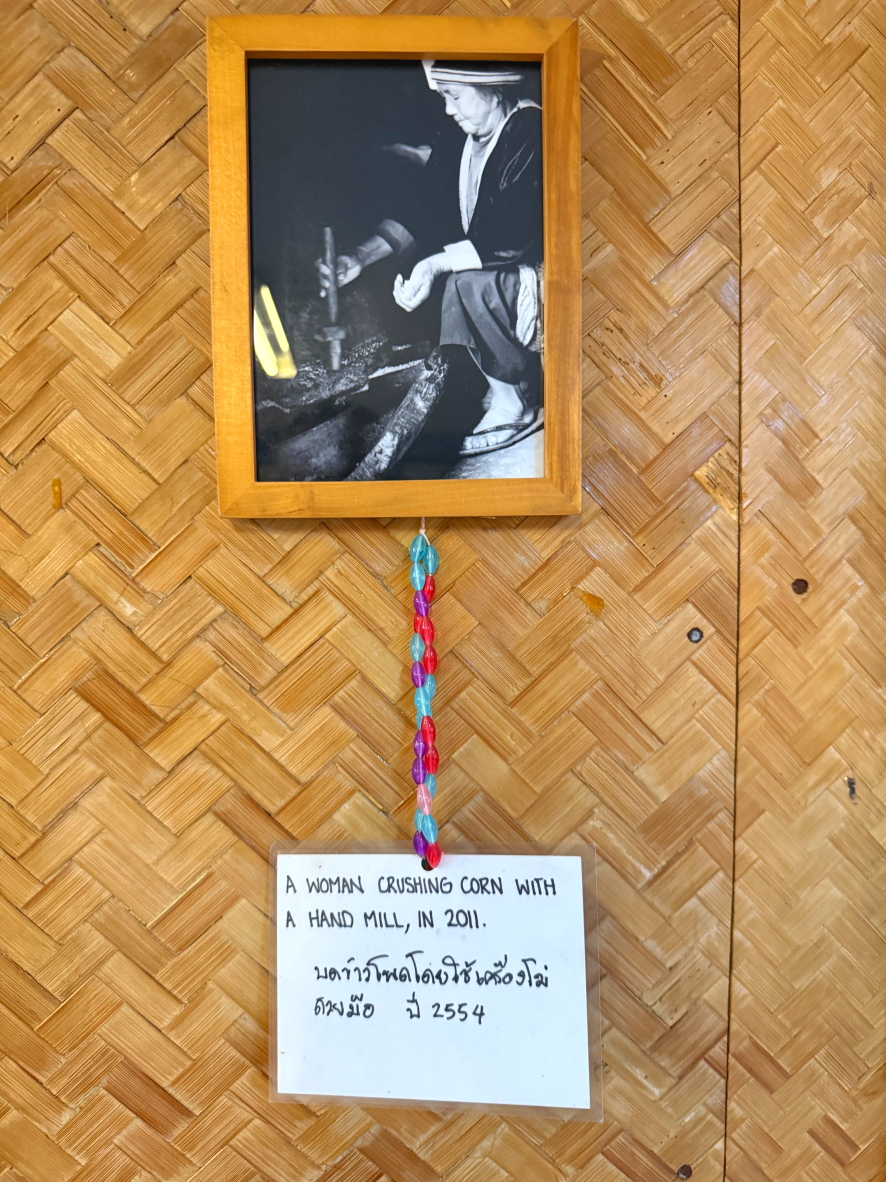 A WOMAN CRUSHING CORN WITH
A HAND MILL, IN 2011.
บดข้าวโพดโดยใช้เครื่องโม่
ด้วยมือ ปี 2554